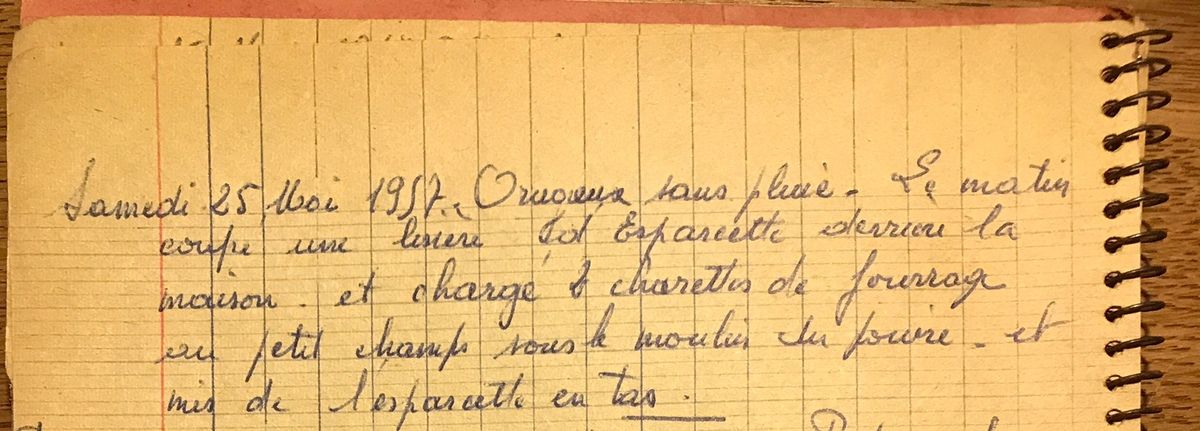 Samedi 25 Mai 1957. Orageux sans pluie - Le matin
coupé une lisière d'Esparcette derrière la
maison. et chargé 2 charettes de fourrage
au petit champs sous le moulin du poivre - et
mis de l'esparcette en tas.